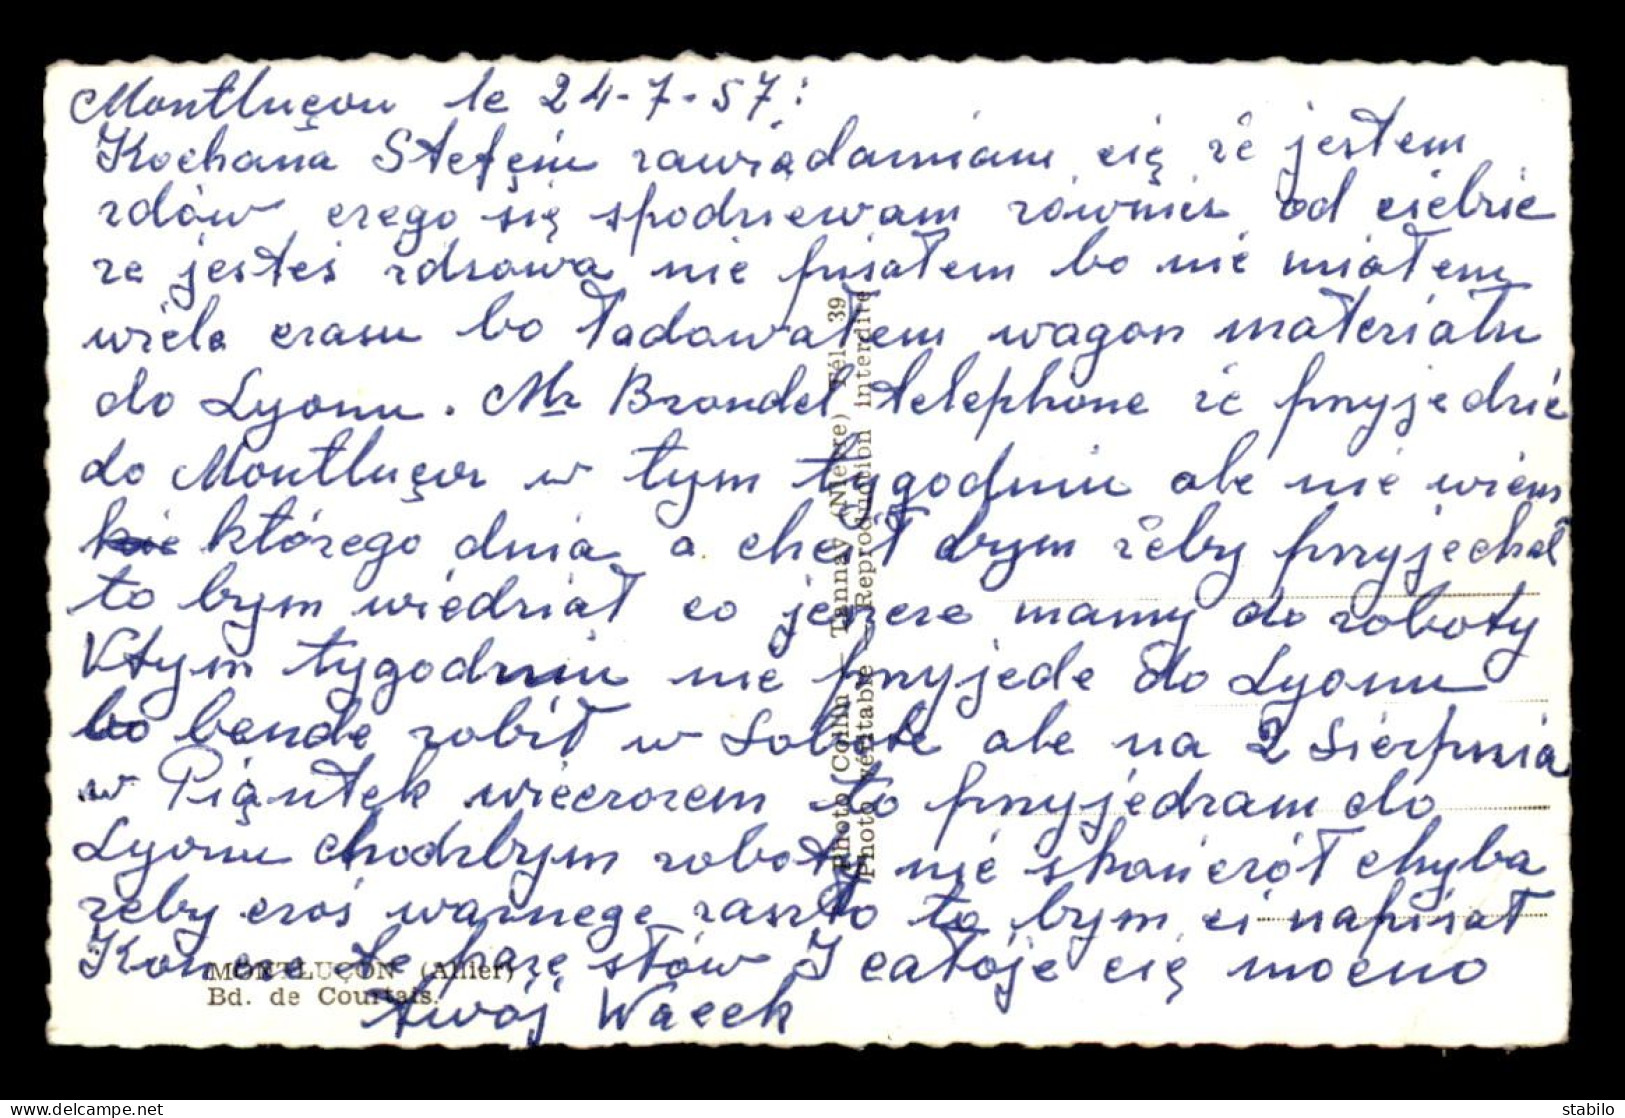 Montluçon le 24-7-57:
Kochana Stefciu zawiądamiam cię że jestem
zdów czego się spodziewam również od ciebie
ze jesteś zdrowa nie pisałem bo nie miałem
wiele czasu bo ładowałem wagon materiału
do Lyonu. Mr Brondel telephone że przyjedzie
do Montluçon w tym tygodniu ale nie wiem
którego dnia a chciał bym żeby przyjechał
to bym wiedział co jeszcze mamy do roboty
W tym tygodniu nie przyjede do Lyonu
bo bende robił w Sobote ale na 2 Sierpnia
w Piąntek wieczorem to przyjedzam do
Lyonu chodzbym roboty nie skończół chyba
zeby czoś warznego zaszło to bym ci napisał
Koncze te parę stów I całóje cię mocno
twój Wacek
MONTLUÇON (Allier)
Bd. de Courtais.
Photo Collin - Tannay (Nièvre) Tél. 39
Photo véritable - Reproduction interdite
stabilo